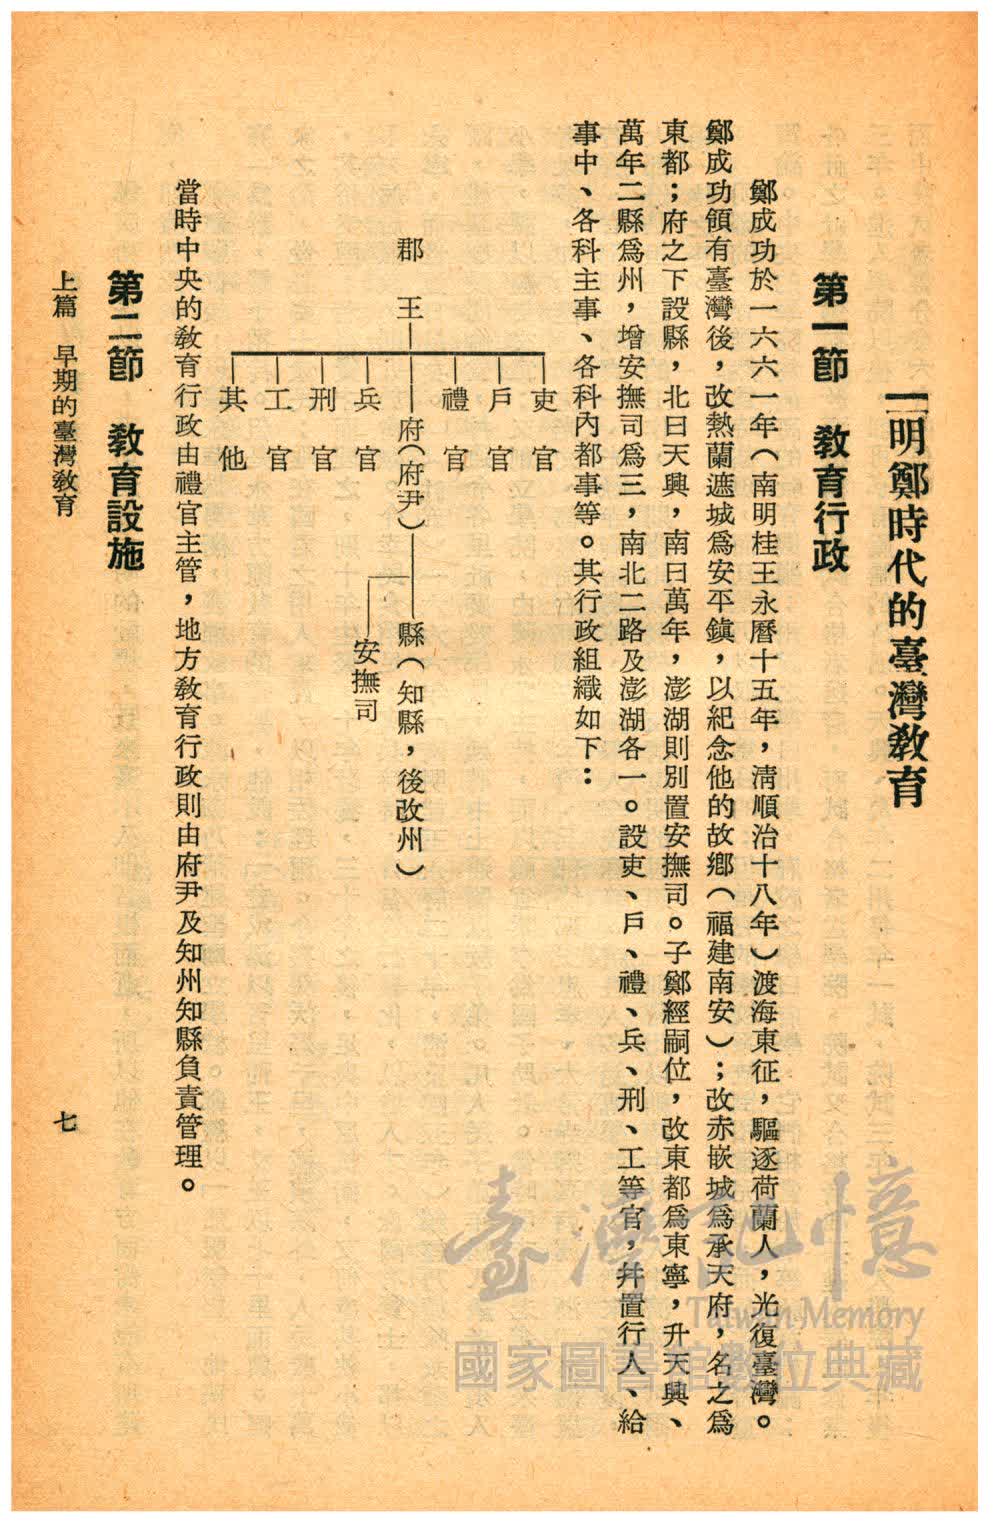 二 明鄭時代的臺灣教育
第一節 教育行政
鄭成功於一六六一年（南明桂王永曆十五年，清順治十八年）渡海東征，驅逐荷蘭人，光復臺灣。
鄭成功領有臺灣後，改熱蘭遮城爲安平鎮，以紀念他的故鄉（福建南安）；改赤嵌城爲承天府，名之爲
東都；府之下設縣，北曰天興，南曰萬年，澎湖則別置安撫司。子鄭經嗣位，改東都爲東寧，升天興、
萬年二縣爲州，增安撫司爲三，南北二路及澎湖各一。設吏、戶、禮、兵、刑、工等官，并置行人、給
事中、各科主事、各科內都事等。其行政組織如下：
吏官
戶官
禮官
郡王
府（府尹）
縣（知縣，後改州）
安撫司
兵官
刑官
工官
其他
當時中央的教育行政由禮官主管，地方教育行政則由府尹及知州知縣負責管理。
第二節 教育設施
上篇 早期的臺灣教育
七
臺灣記憶
Taiwan Memory
國家圖書館數位典藏